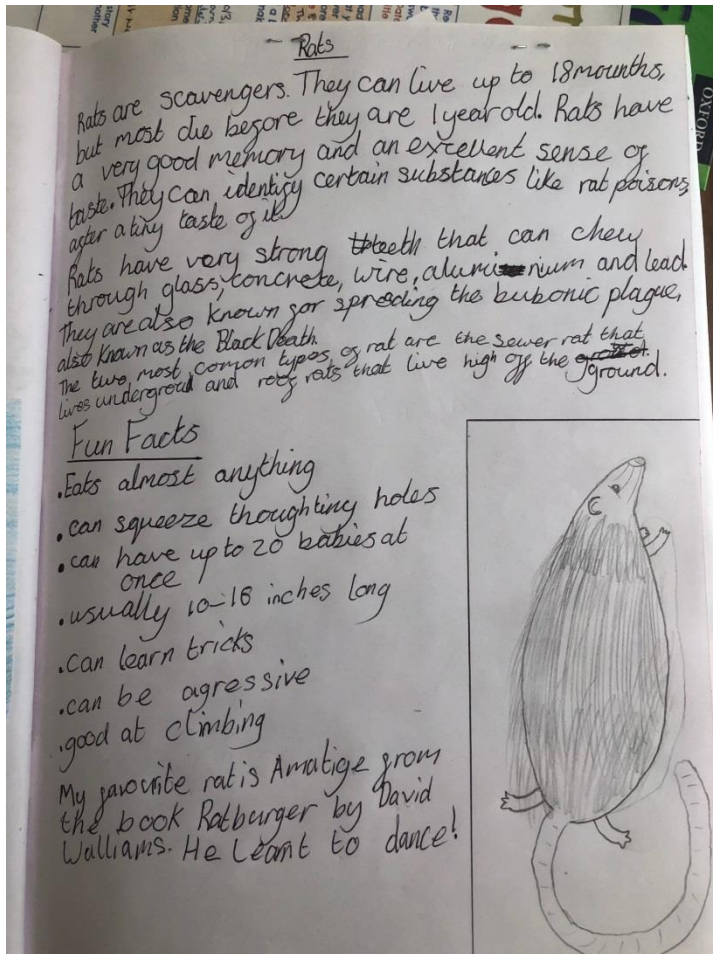 Rats
Rats are scavengers. They can live up to 18 mounths,
but most die before they are 1 year old. Rats have
a very good memory and an excellent sense of
taste. They can identify certain substances like rat poisons,
after a tiny taste of it.
Rats have very strong teeth that can chew
through glass, concrete, wire, aluminium and lead.
They are also known for spreading the bubonic plague,
also known as the Black Death.
The two most comon types of rat are the sewer rat that
lives undergroud and roof rats that live high off the ground.
Fun Facts
.Eats almost anything
.can squeeze thought tiny holes
.can have up to 20 babies at
once
.usually 10-16 inches long
.can learn tricks
.can be agressive
.good at climbing
My favourite rat is Amatige from
the book Ratburger by David
Walliams. He learnt to dance!
OXFORD